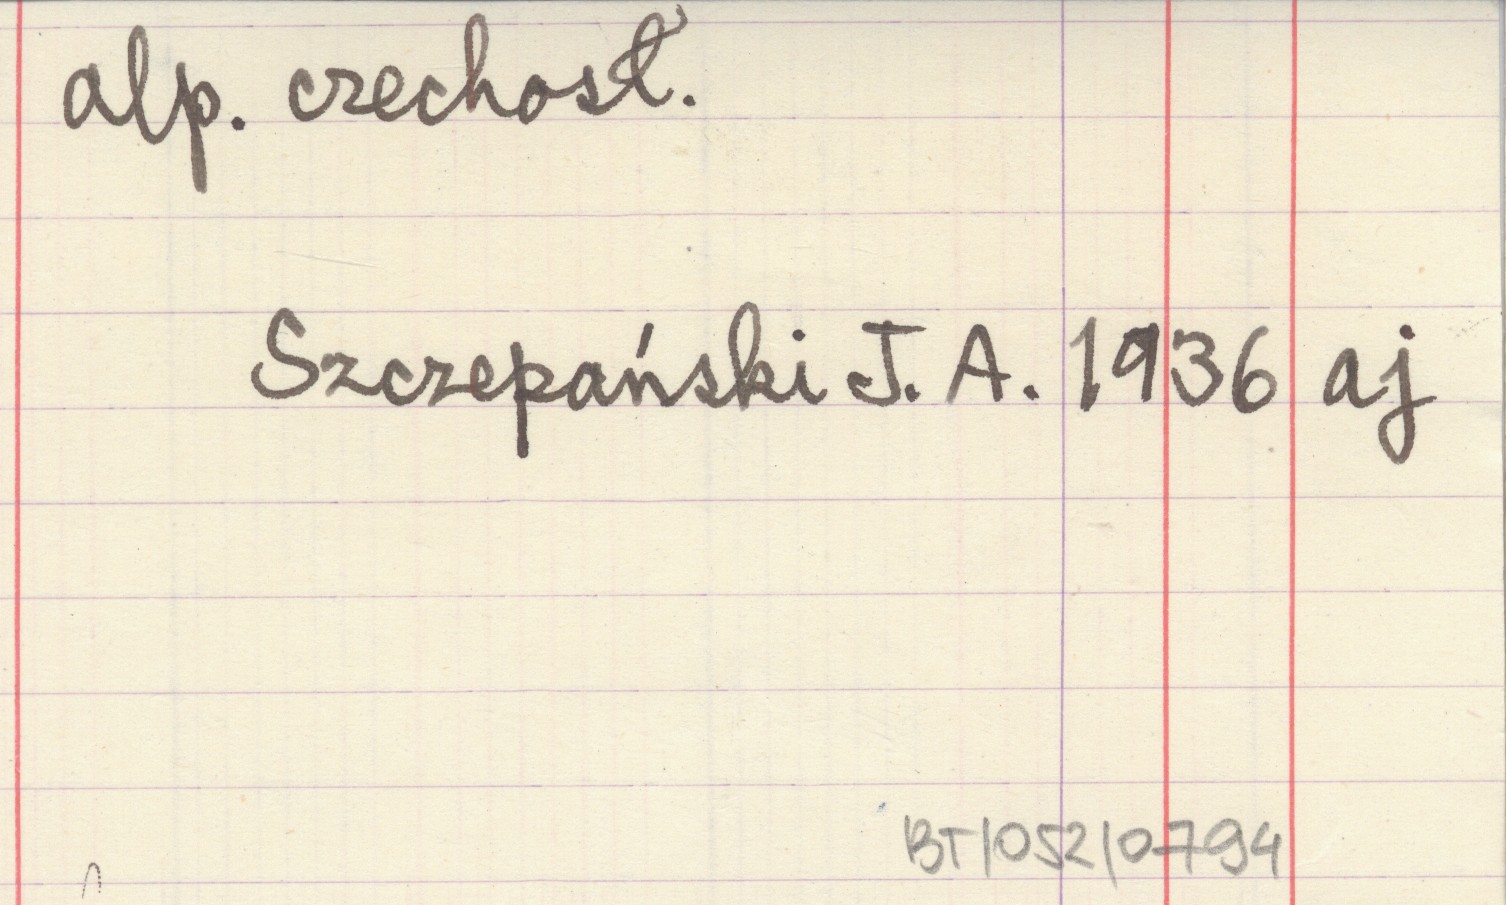 alp. czechosł.
Szczepański J. A. 1936 aj
BT/052/0794